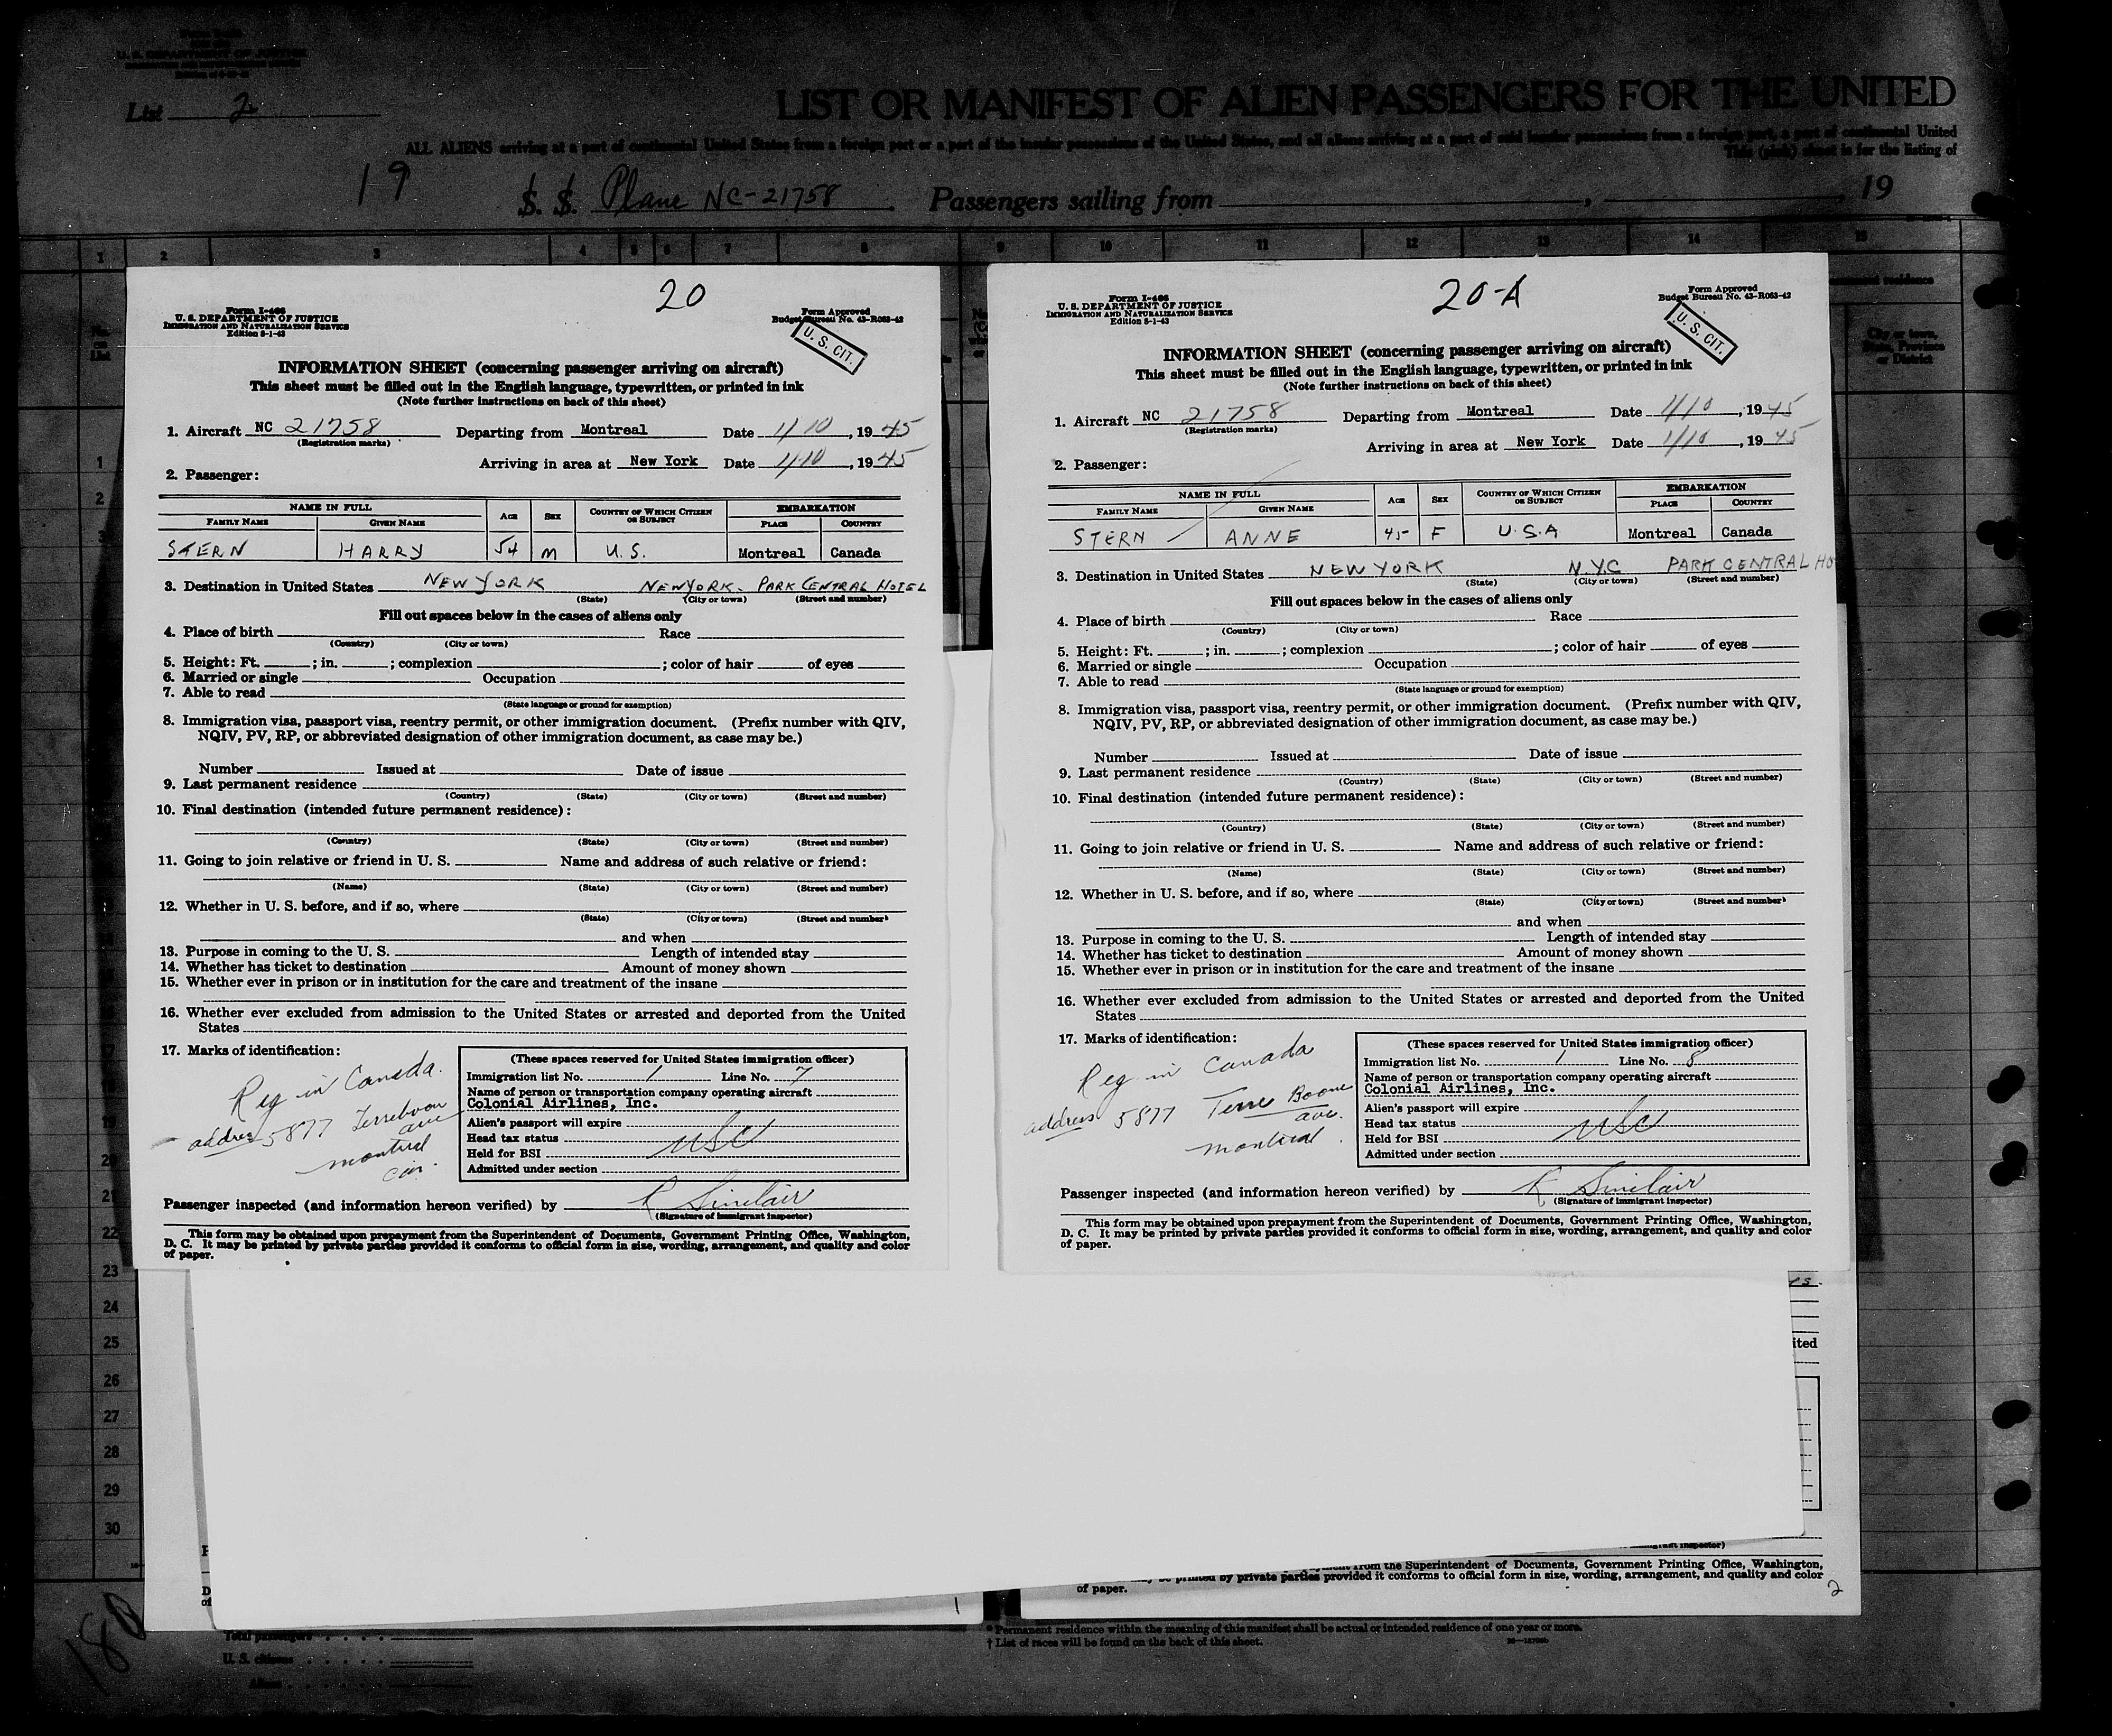 U. S. DEPARTMENT OF JUSTICE
List 2
LIST OR MANIFEST OF ALIEN PASSENGERS FOR THE UNITED
ALL ALIENS arriving at a port of continental United States from a foreign port or a port of the insular possessions of the United States, and all aliens arriving at a port of said insular possessions from a foreign port, a port of continental United
This (pink) sheet is for the listing of
19
S. S. Plane NC-21758 Passengers sailing from , 19
1 2 3 4 5 6 7 8 9 10 11 12 13 14 15
20
Form I-466
U. S. DEPARTMENT OF JUSTICE
IMMIGRATION AND NATURALIZATION SERVICE
Edition 8-1-43
Form Approved
Budget Bureau No. 43-R063-42
U. S. CIT.
INFORMATION SHEET (concerning passenger arriving on aircraft)
This sheet must be filled out in the English language, typewritten, or printed in ink
(Note further instructions on back of this sheet)
1. Aircraft NC 21758 Departing from Montreal Date 1/10, 1945
(Registration marks)
Arriving in area at New York Date 1/10, 1945
2. Passenger:
NAME IN FULL
FAMILY NAME GIVEN NAME AGE SEX COUNTRY OF WHICH CITIZEN OR SUBJECT EMBARKATION PLACE COUNTRY
STERN HARRY 54 M U.S. Montreal Canada
3. Destination in United States NEW YORK NEW YORK. PARK CENTRAL HOTEL
(State) (City or town) (Street and number)
Fill out spaces below in the cases of aliens only
4. Place of birth Race
(Country) (City or town)
5. Height: Ft. ; in. ; complexion ; color of hair of eyes
6. Married or single Occupation
7. Able to read
(State language or ground for exemption)
8. Immigration visa, passport visa, reentry permit, or other immigration document. (Prefix number with QIV,
NQIV, PV, RP, or abbreviated designation of other immigration document, as case may be.)
Number Issued at Date of issue
9. Last permanent residence
(Country) (State) (City or town) (Street and number)
10. Final destination (intended future permanent residence):
(Country) (State) (City or town) (Street and number)
11. Going to join relative or friend in U. S. Name and address of such relative or friend:
(Name) (State) (City or town) (Street and number)
12. Whether in U. S. before, and if so, where
(State) (City or town) (Street and number)
and when
13. Purpose in coming to the U. S. Length of intended stay
14. Whether has ticket to destination Amount of money shown
15. Whether ever in prison or in institution for the care and treatment of the insane
16. Whether ever excluded from admission to the United States or arrested and deported from the United
States
17. Marks of identification:
Reg in Canada.
address 5877 Terrebonn
ave
montreal
(These spaces reserved for United States immigration officer)
Immigration list No. 1 Line No. 7
Name of person or transportation company operating aircraft
Colonial Airlines, Inc.
Alien's passport will expire
Head tax status USC
Held for BSI
Admitted under section
Passenger inspected (and information hereon verified) by R Sinclair
(Signature of immigrant inspector)
This form may be obtained upon prepayment from the Superintendent of Documents, Government Printing Office, Washington,
D. C. It may be printed by private parties provided it conforms to official form in size, wording, arrangement, and quality and color
of paper.
20-A
Form I-466
U. S. DEPARTMENT OF JUSTICE
IMMIGRATION AND NATURALIZATION SERVICE
Edition 8-1-43
Form Approved
Budget Bureau No. 43-R063-42
U. S. CIT.
INFORMATION SHEET (concerning passenger arriving on aircraft)
This sheet must be filled out in the English language, typewritten, or printed in ink
(Note further instructions on back of this sheet)
1. Aircraft NC 21758 Departing from Montreal Date 1/10, 1945
(Registration marks)
Arriving in area at New York Date 1/10, 1945
2. Passenger:
NAME IN FULL
FAMILY NAME GIVEN NAME AGE SEX COUNTRY OF WHICH CITIZEN OR SUBJECT EMBARKATION PLACE COUNTRY
STERN ANNE 45 F U.S.A Montreal Canada
3. Destination in United States NEW YORK N.Y.C PARK CENTRAL HO
(State) (City or town) (Street and number)
Fill out spaces below in the cases of aliens only
4. Place of birth Race
(Country) (City or town)
5. Height: Ft. ; in. ; complexion ; color of hair of eyes
6. Married or single Occupation
7. Able to read
(State language or ground for exemption)
8. Immigration visa, passport visa, reentry permit, or other immigration document. (Prefix number with QIV,
NQIV, PV, RP, or abbreviated designation of other immigration document, as case may be.)
Number Issued at Date of issue
9. Last permanent residence
(Country) (State) (City or town) (Street and number)
10. Final destination (intended future permanent residence):
(Country) (State) (City or town) (Street and number)
11. Going to join relative or friend in U. S. Name and address of such relative or friend:
(Name) (State) (City or town) (Street and number)
12. Whether in U. S. before, and if so, where
(State) (City or town) (Street and number)
and when
13. Purpose in coming to the U. S. Length of intended stay
14. Whether has ticket to destination Amount of money shown
15. Whether ever in prison or in institution for the care and treatment of the insane
16. Whether ever excluded from admission to the United States or arrested and deported from the United
States
17. Marks of identification:
Reg in Canada
address 5877 Terre Boone
ave.
montreal
(These spaces reserved for United States immigration officer)
Immigration list No. 1 Line No. 8
Name of person or transportation company operating aircraft
Colonial Airlines, Inc.
Alien's passport will expire
Head tax status USC
Held for BSI
Admitted under section
Passenger inspected (and information hereon verified) by R Sinclair
(Signature of immigrant inspector)
This form may be obtained upon prepayment from the Superintendent of Documents, Government Printing Office, Washington,
D. C. It may be printed by private parties provided it conforms to official form in size, wording, arrangement, and quality and color
of paper.
City or town, State, Province or District
1
2
3
19
20
21
22
23
24
25
26
27
28
29
30
ited
from the Superintendent of Documents, Government Printing Office, Washington,
printed by private parties provided it conforms to official form in size, wording, arrangement, and quality and color
of paper.
2
1
180
Total passengers
U. S. citizens
Aliens
* Permanent residence within the meaning of this manifest shall be actual or intended residence of one year or more.
† List of races will be found on the back of this sheet.